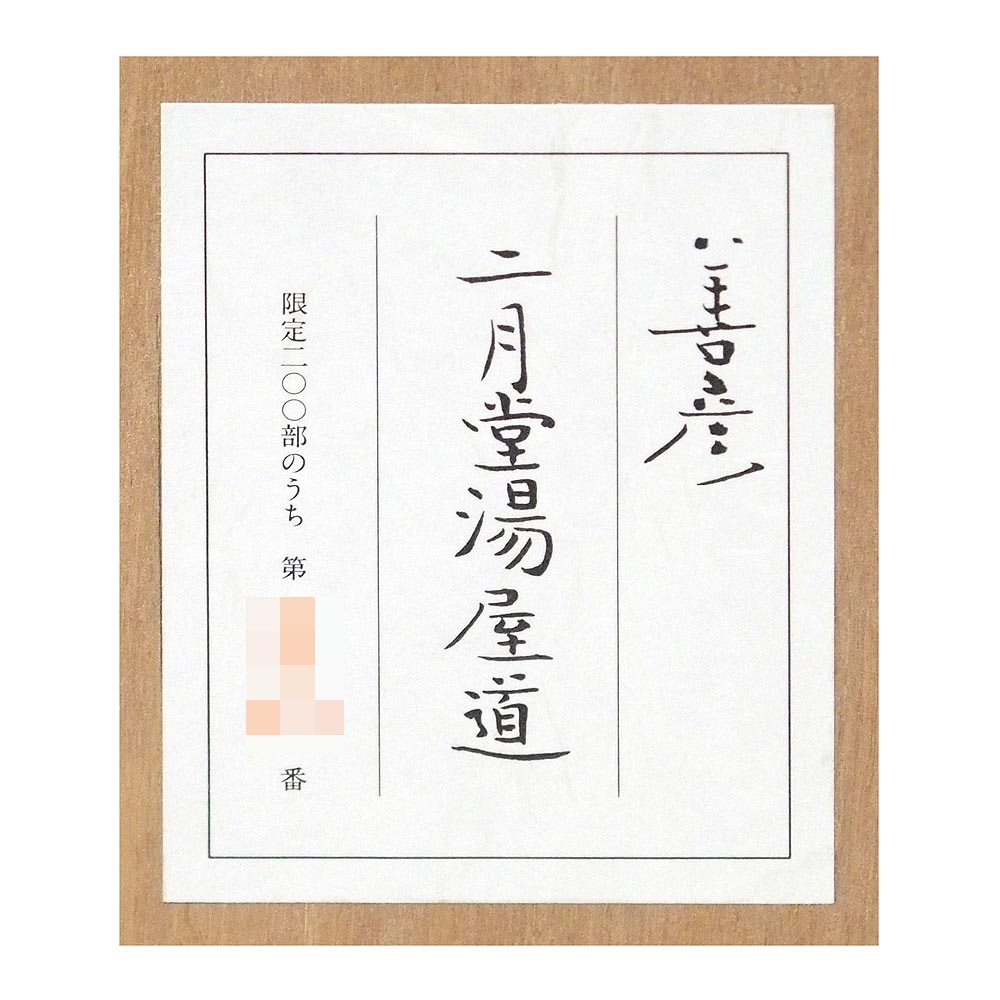 善彦
二月堂湯屋道
限定二〇〇部のうち 第 番